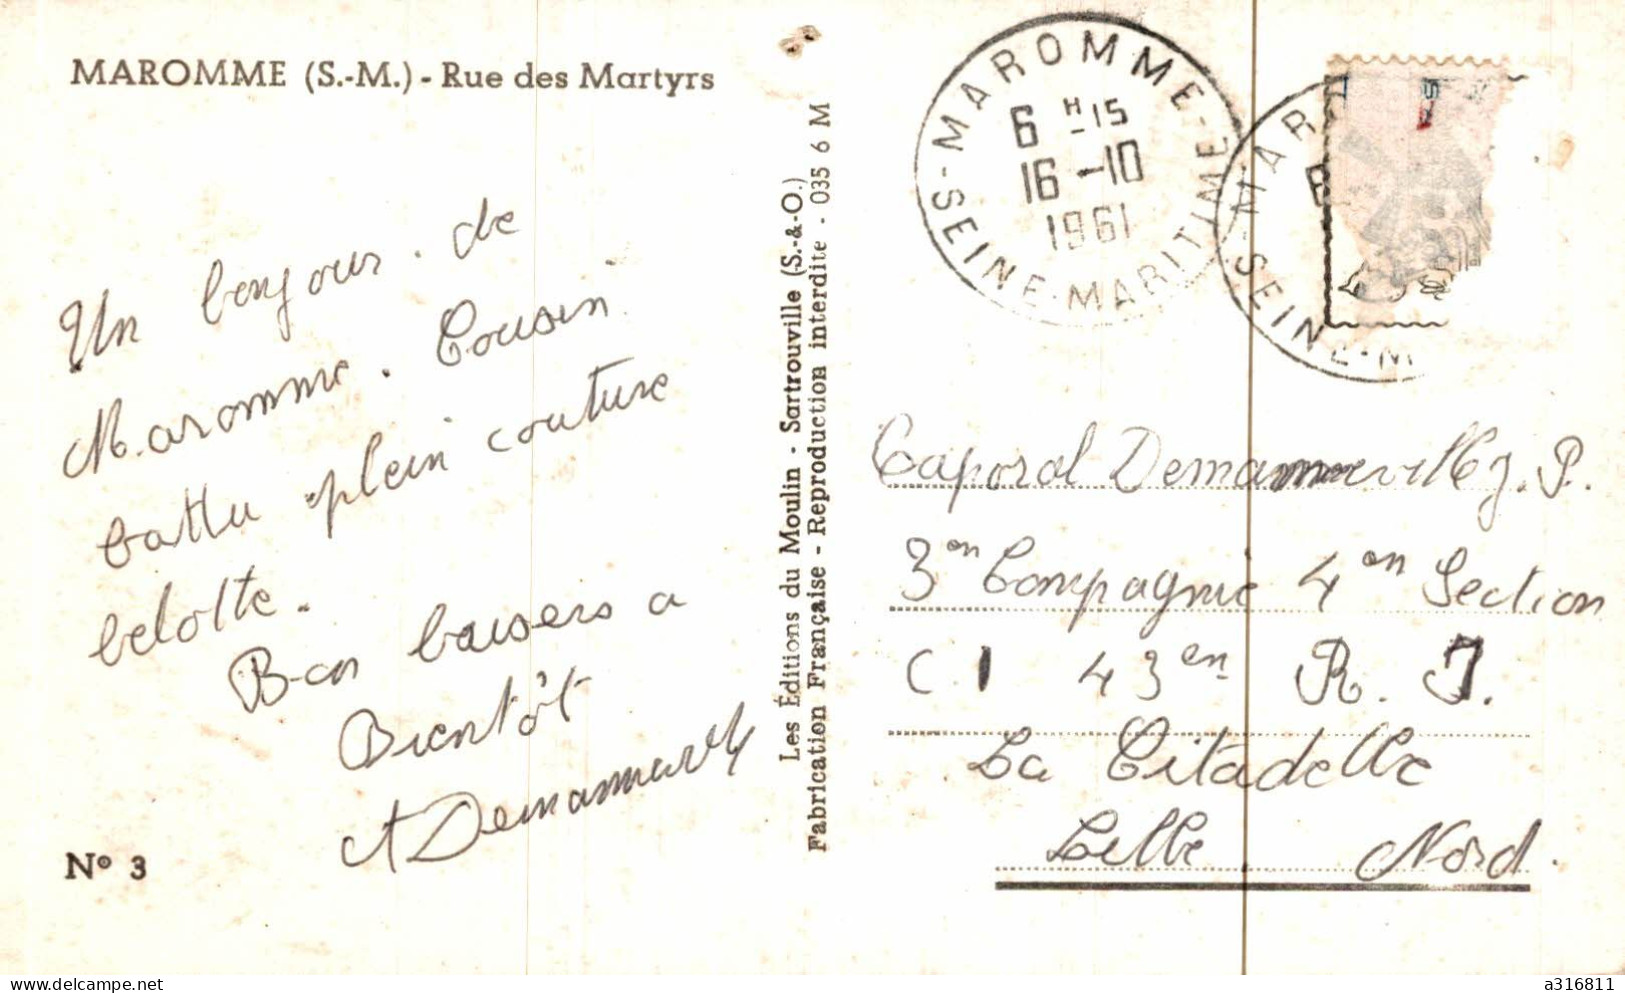 MAROMME (S.-M.) - Rue des Martyrs
Un bonjour. de
Maromme. Cousin
battu plein couture
belotte.
Bon baisers a
Bientôt
N° 3
Les Éditions du Moulin - Sartrouville (S.-&-O.)
Fabrication Française - Reproduction interdite - 035 6 M
MAROMME - SEINE-MARITIME
6 H -15
16 -10
1961
Caporal J. P.
3en Compagnie 4en Section
C.I 43en R. I.
La Citadelle
Lille Nord.
delcampe.net
a316811